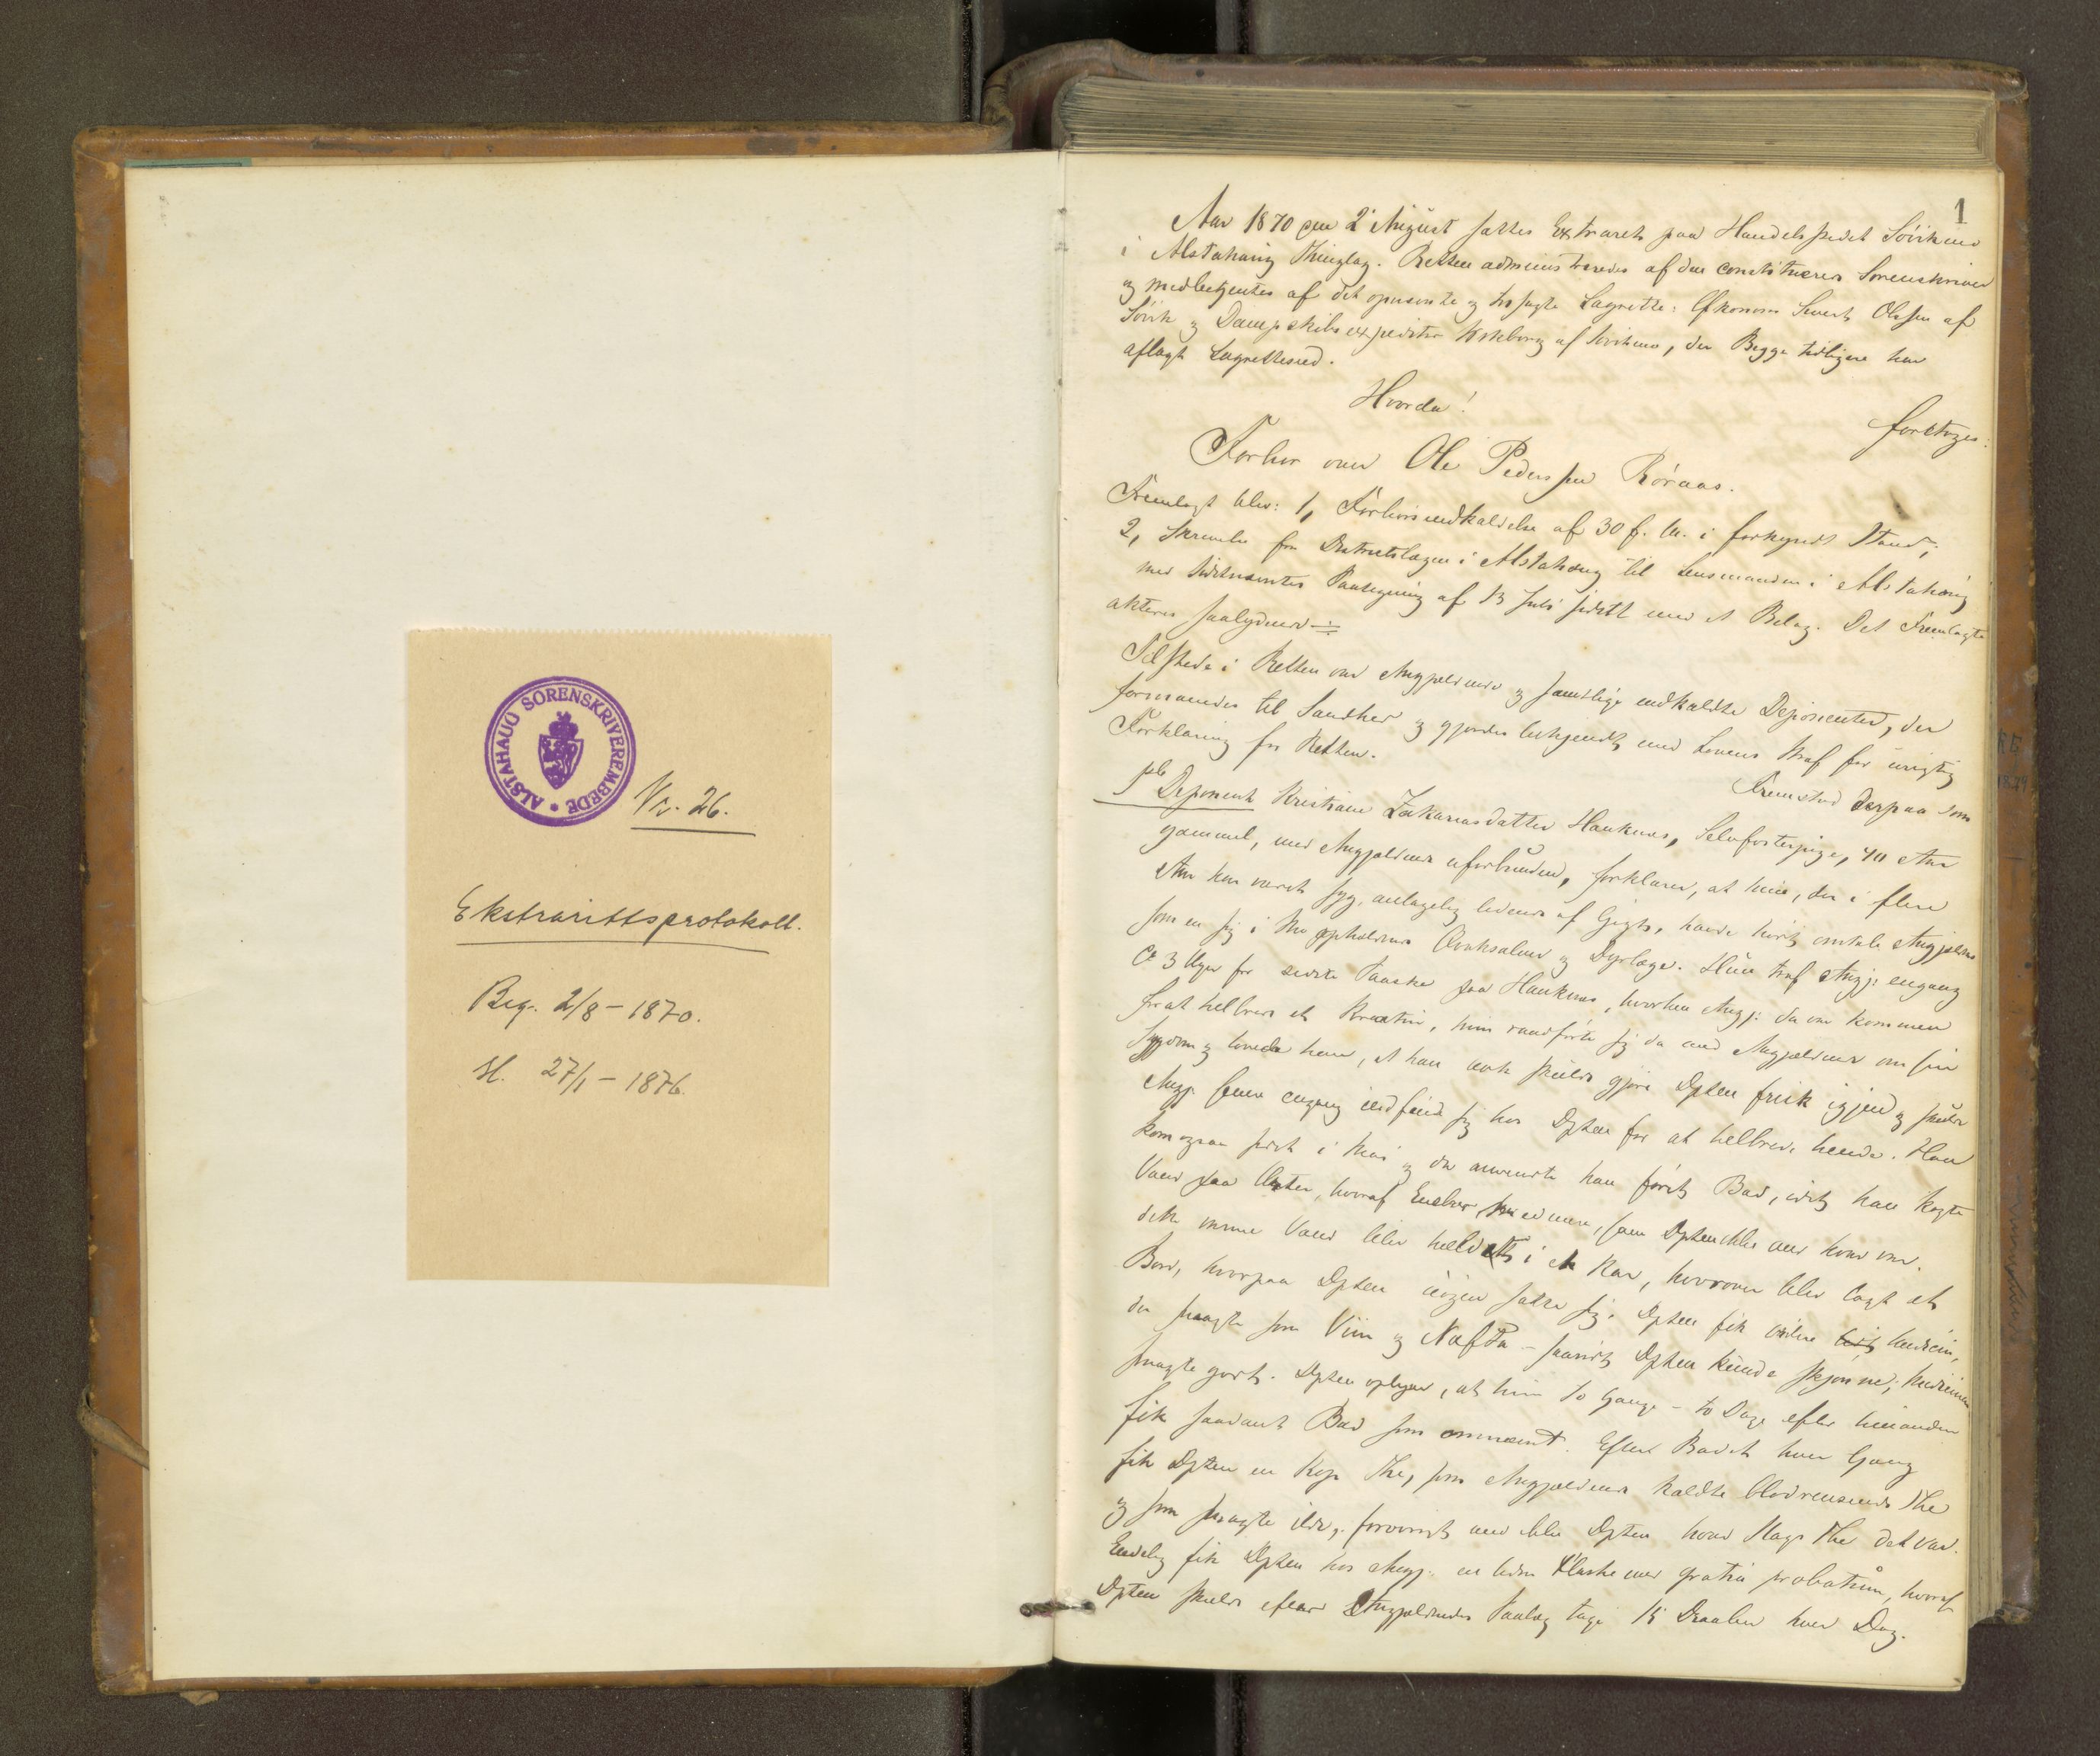 ALSTAHAUG SORENSKRIVEREMBEDE
Nr. 26.
Ekstrarettsprotokoll.
Beg. 2/8 - 1870.
Sl. 27/1 - 1876.
1
Aar 1870 den 2 August sattes Extraret paa Handelsstedet Søvikens
i Alstahaug Thinglag. Retten administreredes af den constituerede Sorenskriver
og medbetjentes af det opnævnte og tilsagte Lagrette: Sivert Olsen af
Søvik og Dampskibsexpeditør af Søviken, der Begge tidligere har
aflagt Lagrettesed.
Hvorda!
foretoges:
Forhør over Ole Pedersen Røraas.
Fremlagt blev: 1, Forhørsindkaldelse af 30 f. M. i forkyndt Stand;
2, Skrivelse fra Distriktslægen i Alstahaug til Lensmanden i Alstahaug
med Sidstnævntes Paategning af 13 Juli sidstl. med et Bilag. Det Fremlagte
akteres saalydende ÷
Tilstede i Retten var Angjældende og samtlige indkaldte Deponenter, der
formanedes til Sandhed og gjordes bekjendt med Lovens Straf for urigtig
Forklaring for Retten.
Fremstod derpaa som
1ste Deponent Kristiane Zakariasdatter Haukenes, Selvfosterpige, 40 Aar
gammel, med Angjældende uforbunden, forklarer, at hun, der i flere
Aar har været syg, antagelig lidende af Gigt, havde hørt omtale Angjældende
som en sig i opholdende Kvaksalver og Dyrlæge. Hun traf Angj. engang
Ca 3 Uger før sidste Paaske paa Haukenes, hvorhen Angj. da var kommen
for at helbrede et Kreatur, hun raadførte sig da med Angjældende om sin
Sygdom og lovede han, at han nok skulde gjøre Dpten frisk igjen og skulde
Angj. senere engang indfinde sig hos Dpten for at helbrede hende. Han
kom ogsaa sidst i Mai og da anvendte han først Bad, idet han kogte
Vand paa hvoraf Enebær med mere, som Dpten ikke ved hvad var.
dette varme Vand blev heldt i et Kar, hvorover blev lagt et
Bord, hvorpaa Dpten nøgen satte sig. Dpten fik videre Medicin,
der smagte som Viin og Nafta - saavidt Dpten kunde skjønne; Medicinen
smagte godt. Dpten oplyser, at hun to Gange - to Dage efter hinanden
fik saadant Bad som omnævnt. Efter Badet hver Gang
fik Dpten en Kop The, som Angjældende kaldte blodrensende The
og som smagte ilde, forøvrigt ved ikke Dpten hvad Slags The det var.
Endelig fik Dpten hos Angj. en liden Flaske med gratia probatum, hvoraf
Dpten skulde efter Angjældendes Paalæg tage 15 Draaber hver Dag.